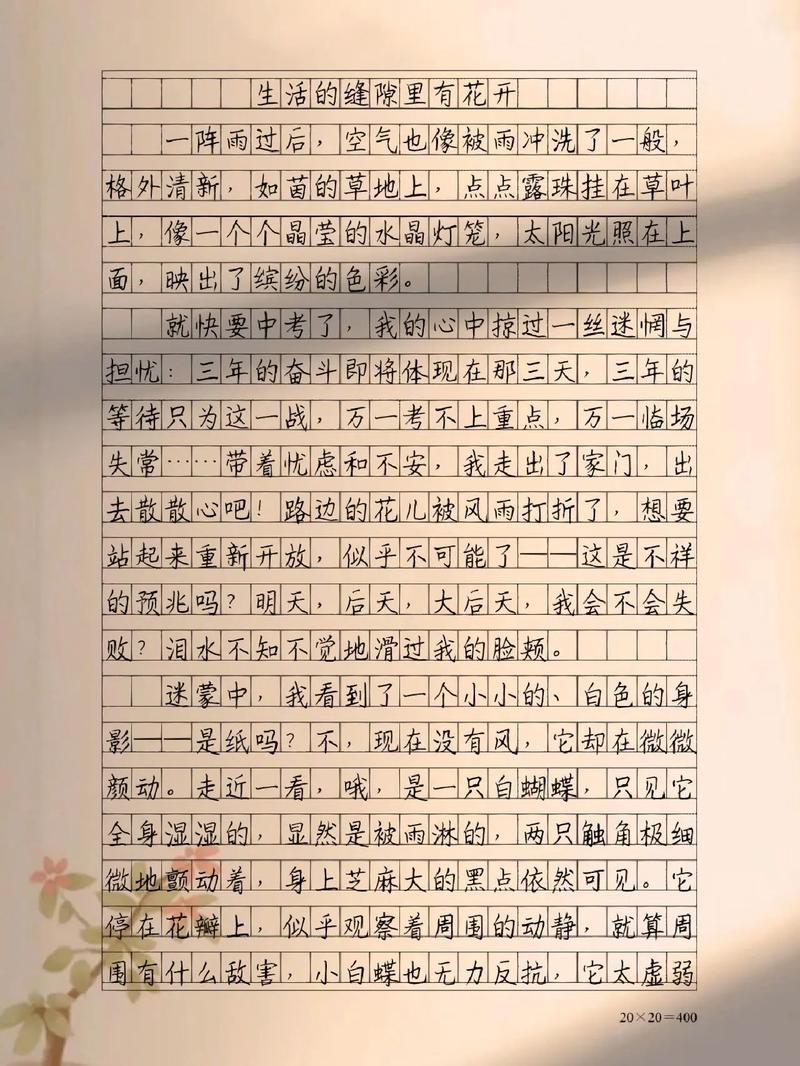 生活的缝隙里有花开
一阵雨过后，空气也像被雨冲洗了一般，
格外清新，如茵的草地上，点点露珠挂在草叶
上，像一个个晶莹的水晶灯笼，太阳光照在上
面，映出了缤纷的色彩。
就快要中考了，我的心中掠过一丝迷惘与
担忧：三年的奋斗即将体现在那三天，三年的
等待只为这一战，万一考不上重点，万一临场
失常……带着忧虑和不安，我走出了家门，出
去散散心吧！路边的花儿被风雨打折了，想要
站起来重新开放，似乎不可能了——这是不祥
的预兆吗？明天，后天，大后天，我会不会失
败？泪水不知不觉地滑过我的脸颊。
迷蒙中，我看到了一个小小的、白色的身
影——是纸吗？不，现在没有风，它却在微微
颜动。走近一看，哦，是一只白蝴蝶，只见它
全身湿湿的，显然是被雨淋的，两只触角极细
微地颤动着，身上芝麻大的黑点依然可见。它
停在花瓣上，似乎观察着周围的动静，就算周
围有什么敌害，小白蝶也无力反抗，它太虚弱
20×20=400